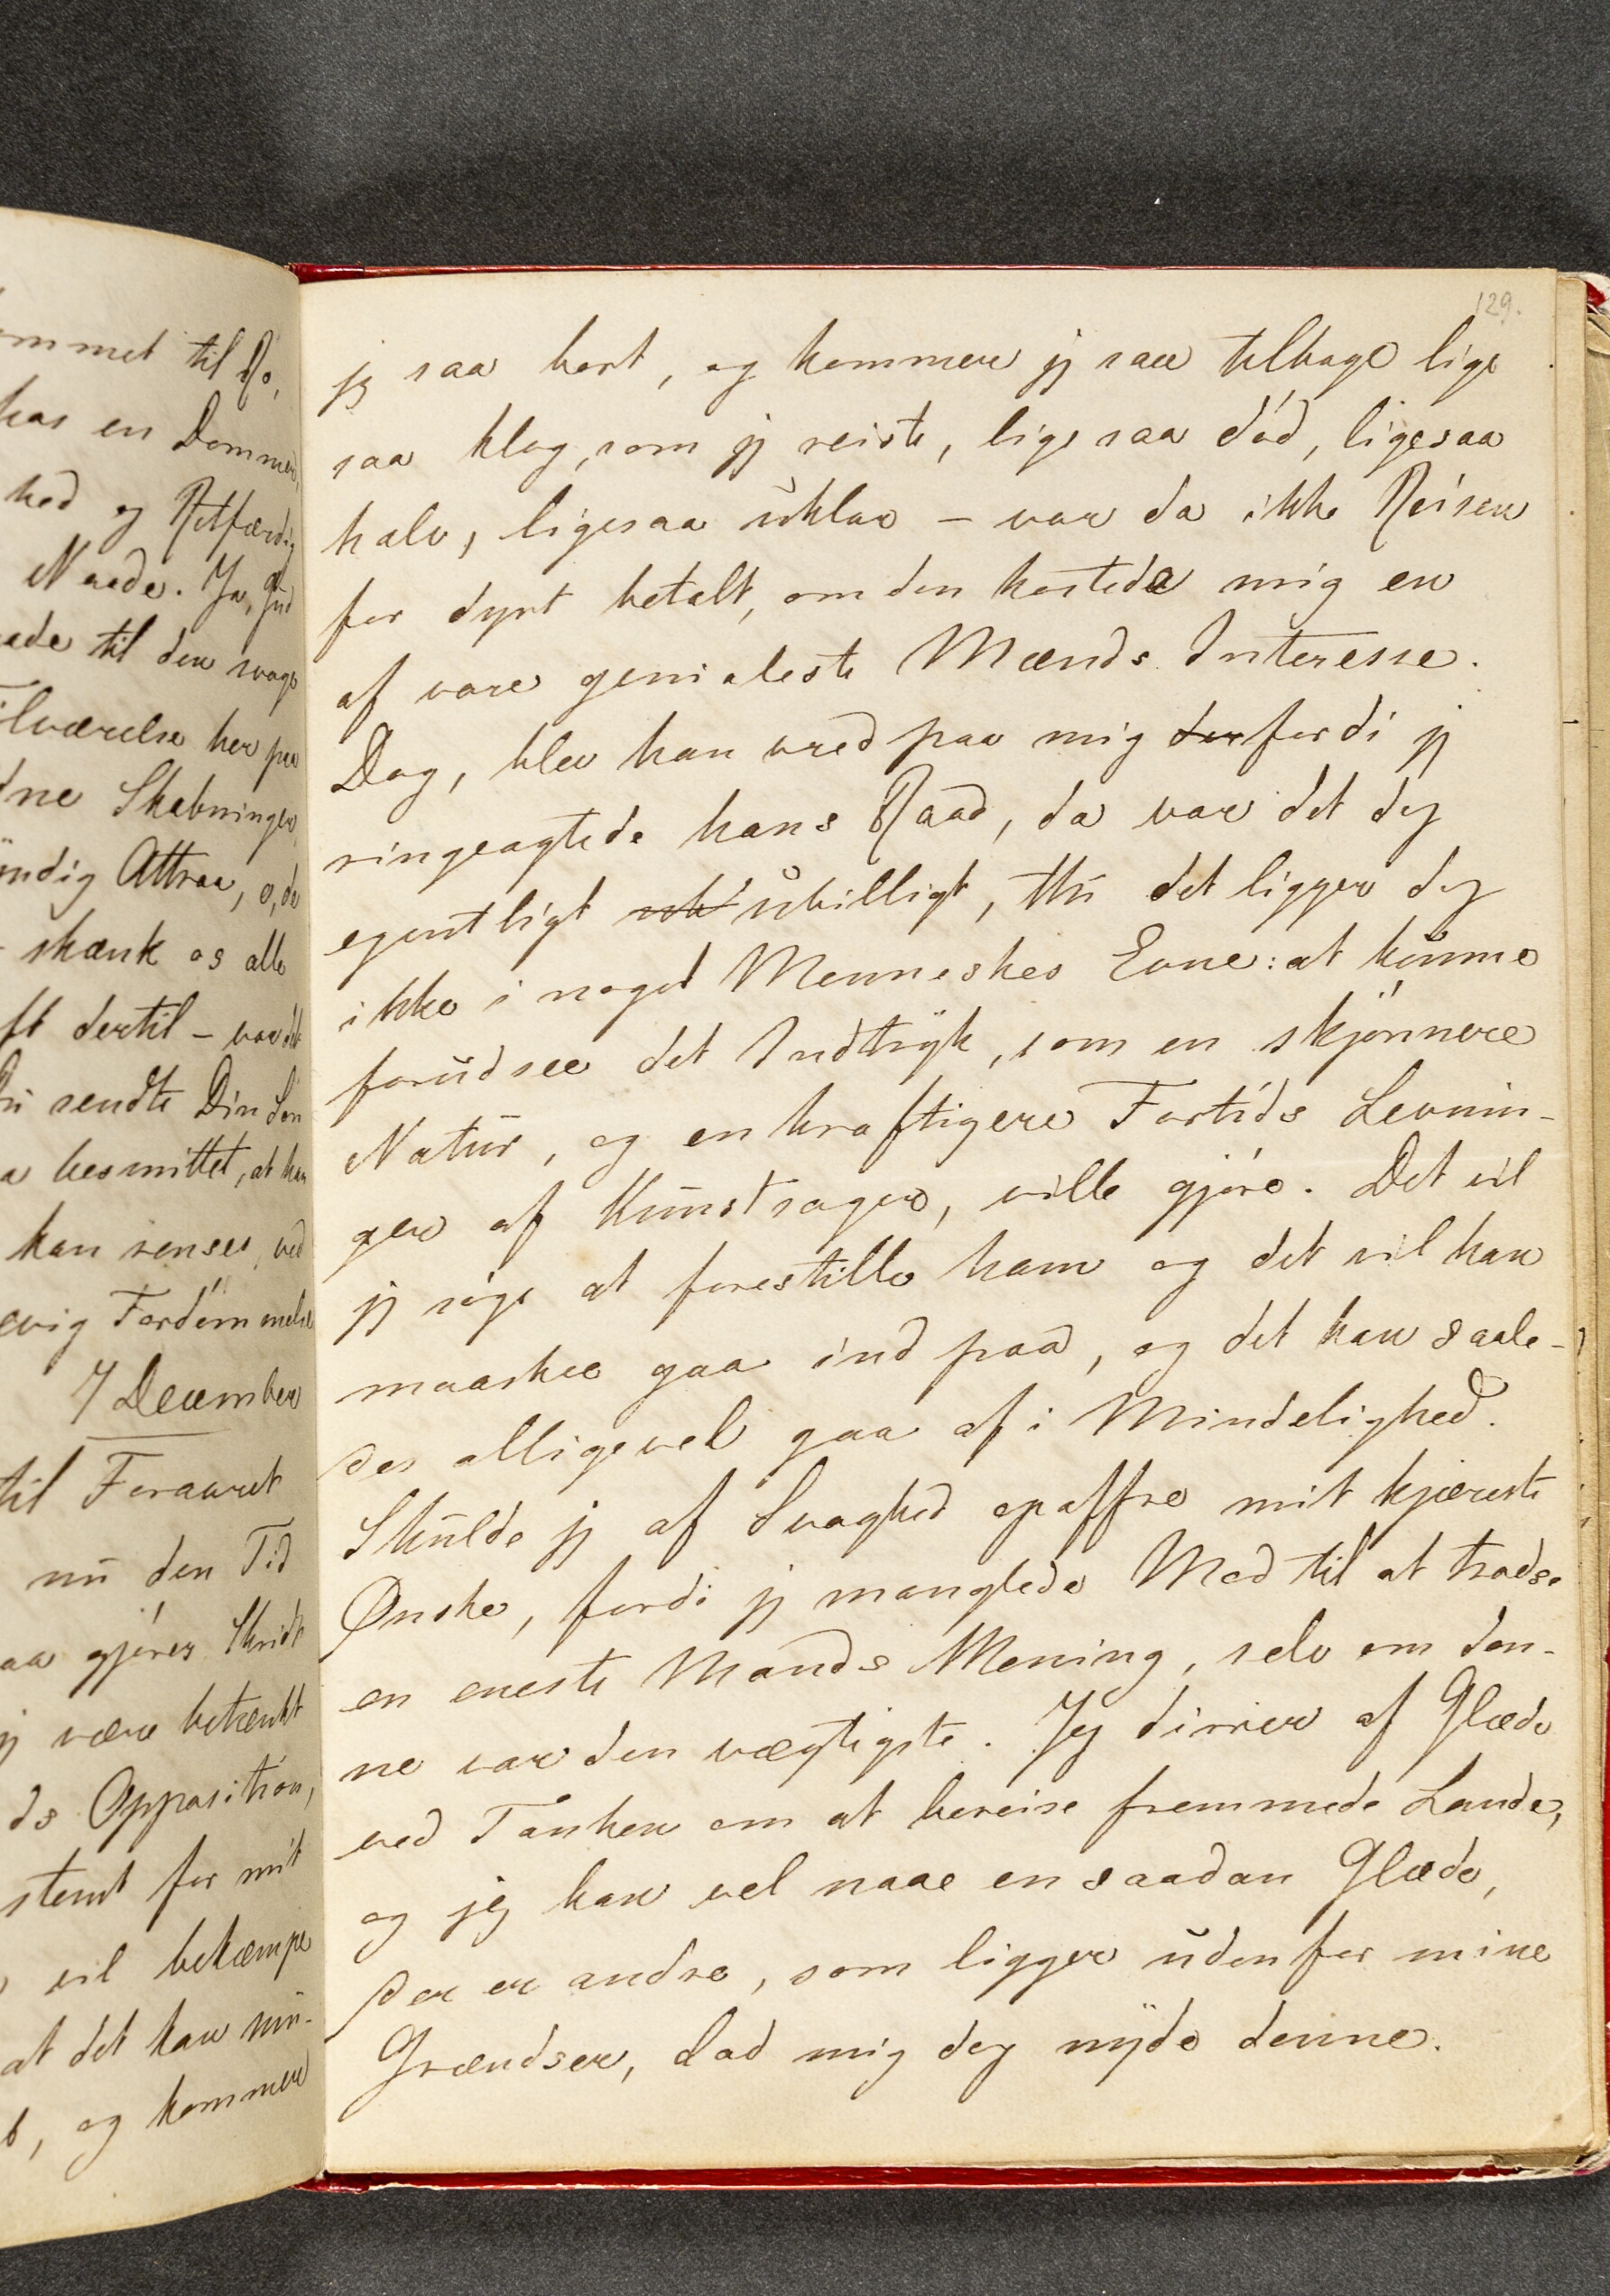 129.
jeg saa bort, og kommer jeg saa tilbage lige
saa klog, som jeg reiste, ligesaa död, ligesaa
halv, ligesaa uklar – var da ikke Reisen
for dyrt betalt, om den kostede mig en
af vore genialeste Mænds Interesse.
Dog, blev han vred paa mig der fordi jeg
ringeagtede hans Raad, da var det dog
egentligt ub ubilligt, thi det ligger dog
ikke i noget Menneskes Evne: at kunne
forudsee det Indtryk, som en skjönnere
Natur, og en kraftigere Fortids Levnin-
ger af Kunstsager, ville gjöre. Det vil
jeg söge at forestille ham og det vil han
maaskee gaa ind paa, og det kan saale-
des alligevel gaa af i Mindelighed.
Skulde jeg af Svaghed opoffre mit kjæreste
Ønske, fordi jeg manglede Mod til at trodse
en eneste Mands Mening, selv om den-
ne var den vægtigste. Jeg dirrer af Glæde
ved Tanken om at bereise fremmede Lande,
og jeg kan vel naae en saadan Glæde,
der er andre, som ligger udenfor mine
Grændser, lad mig dog nyde denne.
ommet til Ro,
hos en Dommer,
hed og Retfærdig
Naade. Ja, Gud
aade til den svage
ilværelse her paa
dne Skabninger,
yndig Attraa, o, da
skænk os alle
ft dertil – var det
Du sendte Din Sön
a besmittet, at han
kan renses, ved
evig Fordömmelse
7 December
til Foraaret
nu den Tid
aa gjöres Skridt
jeg være betænkt
ds Opposition,
stemt for mit
vil bekæmpe
at det kan
, og kommer